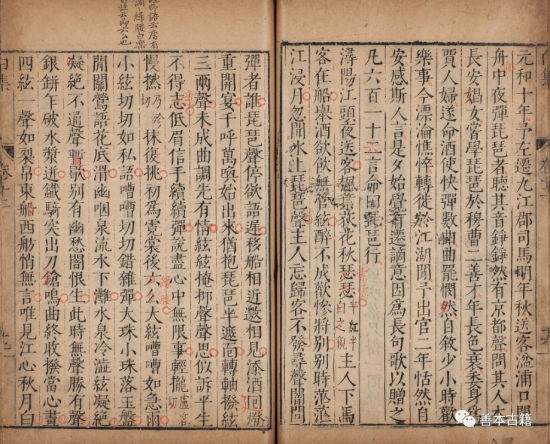 元和十年予左遷九江郡司馬明年秋送客湓浦口聞
舟中夜彈琵琶者聽其音錚錚然有京都聲問其人本
長安娼女嘗學琵琶於穆曹二善才年長色衰委身為
賈人婦遂命酒使快彈數曲曲罷憫然自敘少小時歡
樂事今漂淪憔悴轉徙於江湖間予出官二年恬然自
安感斯人言是夕始覺有遷謫意因為長句歌以贈之
凡六百一十二言命曰琵琶行
潯陽江頭夜送客楓葉荻花秋瑟瑟半紅半白之貌主人下馬
客在船舉酒欲飲無管絃醉不成歡慘將別別時茫茫
江浸月忽聞水上琵琶聲主人忘歸客不發尋聲闇問
彈者誰琵琶聲停欲語遲移船相近邀相見添酒回燈
重開宴千呼萬喚始出來猶抱琵琶半遮面轉軸撥絃
三兩聲未成曲調先有情絃絃掩抑聲聲思似訴平生
不得志低眉信手續續彈說盡心中無限事輕攏
慢撚抹復挑初為霓裳後六么大絃嘈嘈如急雨
小絃切切如私語嘈嘈切切錯雜彈大珠小珠落玉盤
間關鶯語花底滑幽咽泉流水下灘水泉冷澁絃凝絕
凝絕不通聲暫歇別有幽愁闇恨生此時無聲勝有聲
銀缾乍破水漿迸鐵騎突出刀鎗鳴曲終收撥當心畫
四絃一聲如裂帛東船西舫悄無言唯見江心秋月白
善本古籍